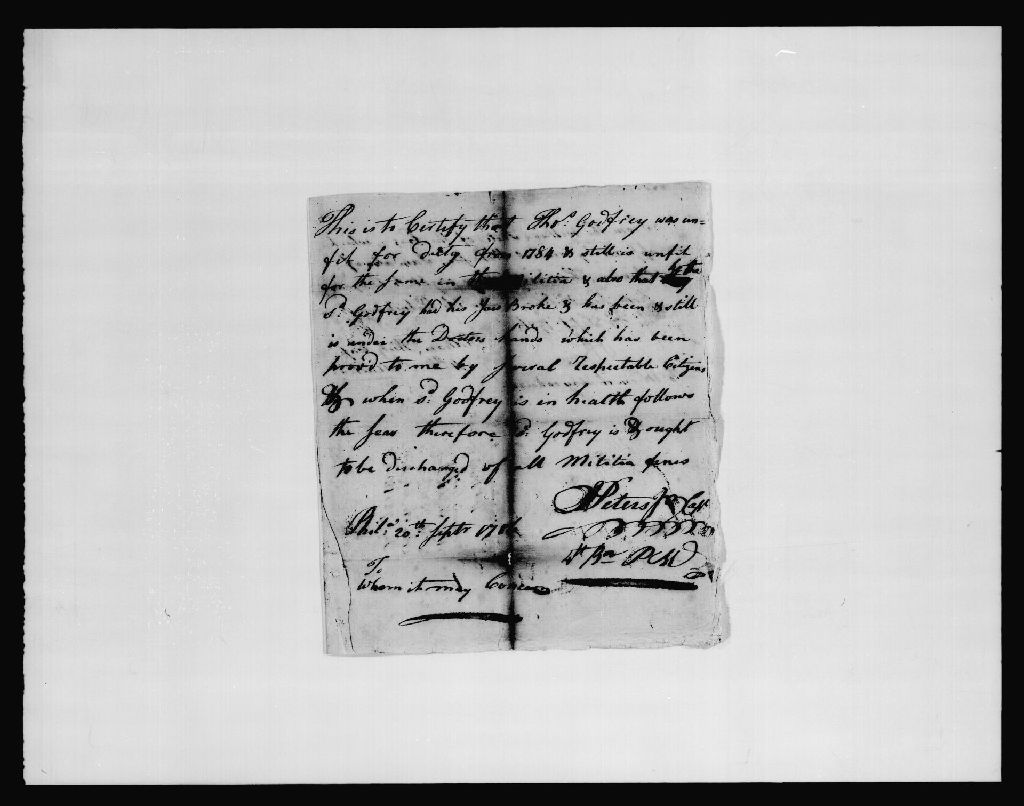 This is to Certify that Thos. Godfrey was un=
fit for duty from 1784 & still is unfit
for the same in the Militia & also that the
sd. Godfrey had his Jaw Broke & has been & still
is under the Doctors hands which has been
provd to me by several Respectable Citizens
& when sd. Godfrey is in health follows
the seas therefore sd. Godfrey is & ought
to be discharged of all Militia fines
Peters Jr Capt
Phila. 20th. Septr 178
4th Bn P M
To
Whom it may Concern